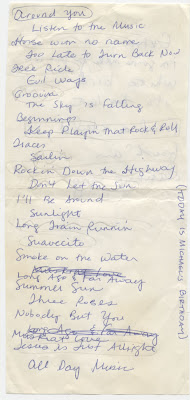 Around You
Listen to the Music
Horse w no name
Too Late to Turn Back Now
Free Ride
Evil Ways
Groovin
The Sky is Falling
Beginnings
Keep Playin That Rock & Roll
Traces
Sailin
Rockin Down the Highway
Don't Let the Sun
I'll Be Around
Sunlight
Long Train Runnin
Suavecito
Smoke on the Water
Long Ago & Far Away
Summer Sun
Three Roses
Nobody But You
Long Ago & Far Away
Mama's Love
Jesus is Just Alright
All Day Music
(TODAY IS MICHAEL'S BIRTHDAY)